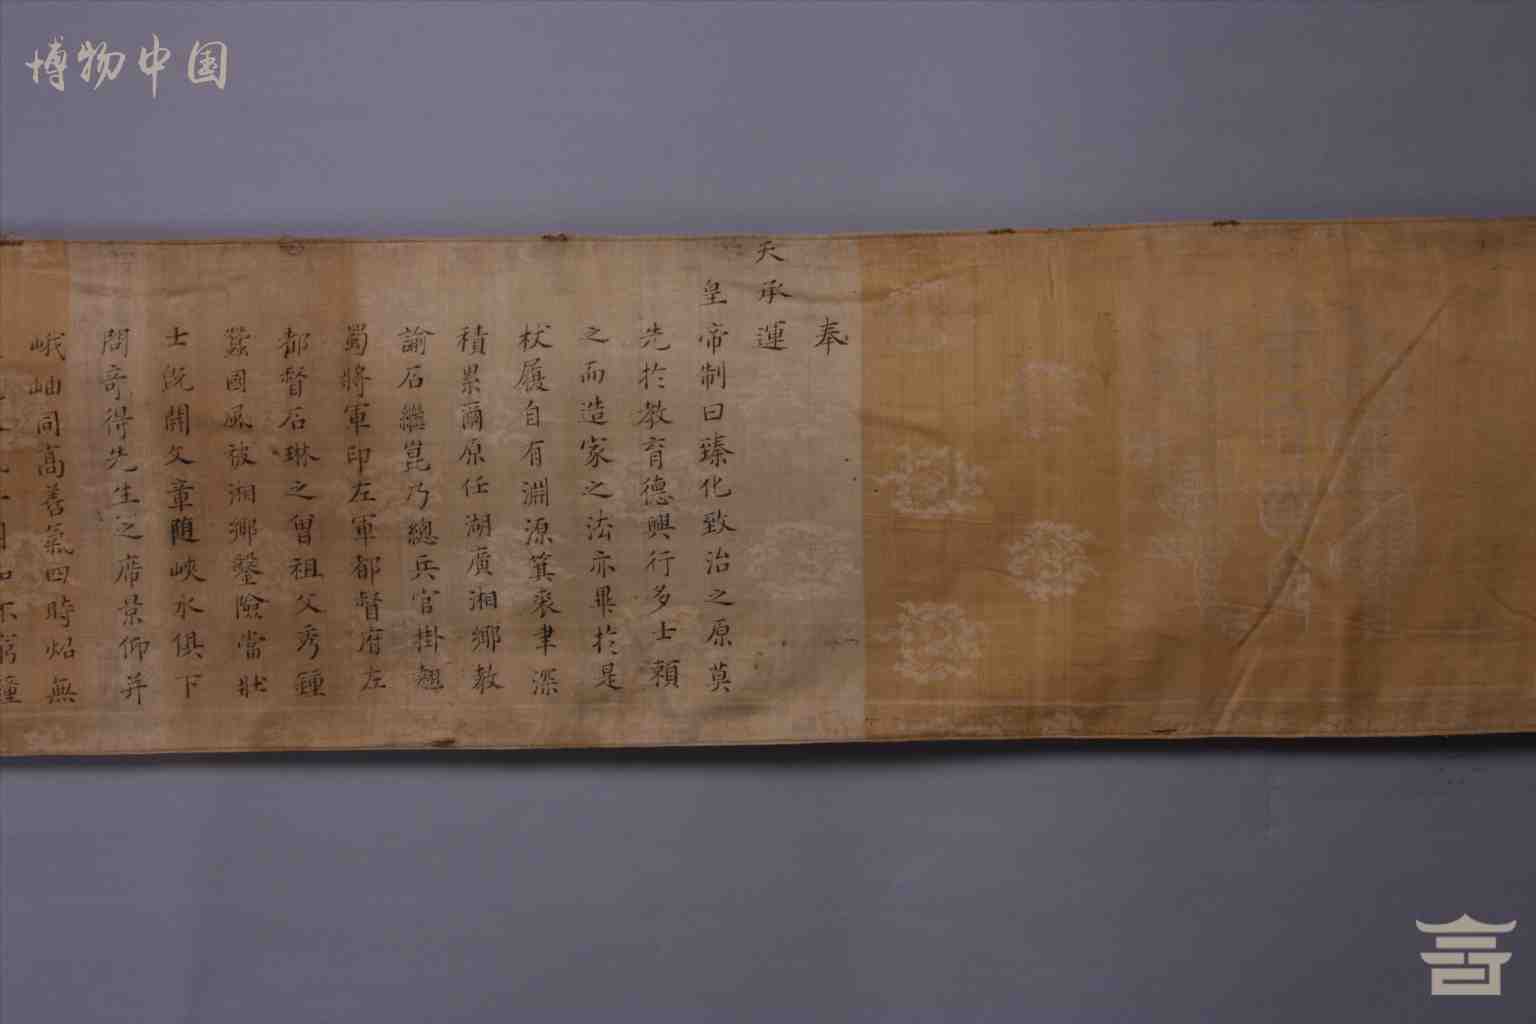 博物中国
奉
天承運
皇帝制曰臻化致治之原莫
先於教育德興行多士賴
之而造家之法亦畢於是
杖履自有淵源箕裘聿深
積累爾原任湖廣湘鄉教
諭石繼崑乃總兵官掛翹
蜀將軍印左軍都督府左
都督石琳之曾祖父秀鍾
蠶國風被湘鄉鑿險當壯
士既闢文章随峽水俱下
問奇得先生之席景仰并
峨岫同高善氣四時炤無